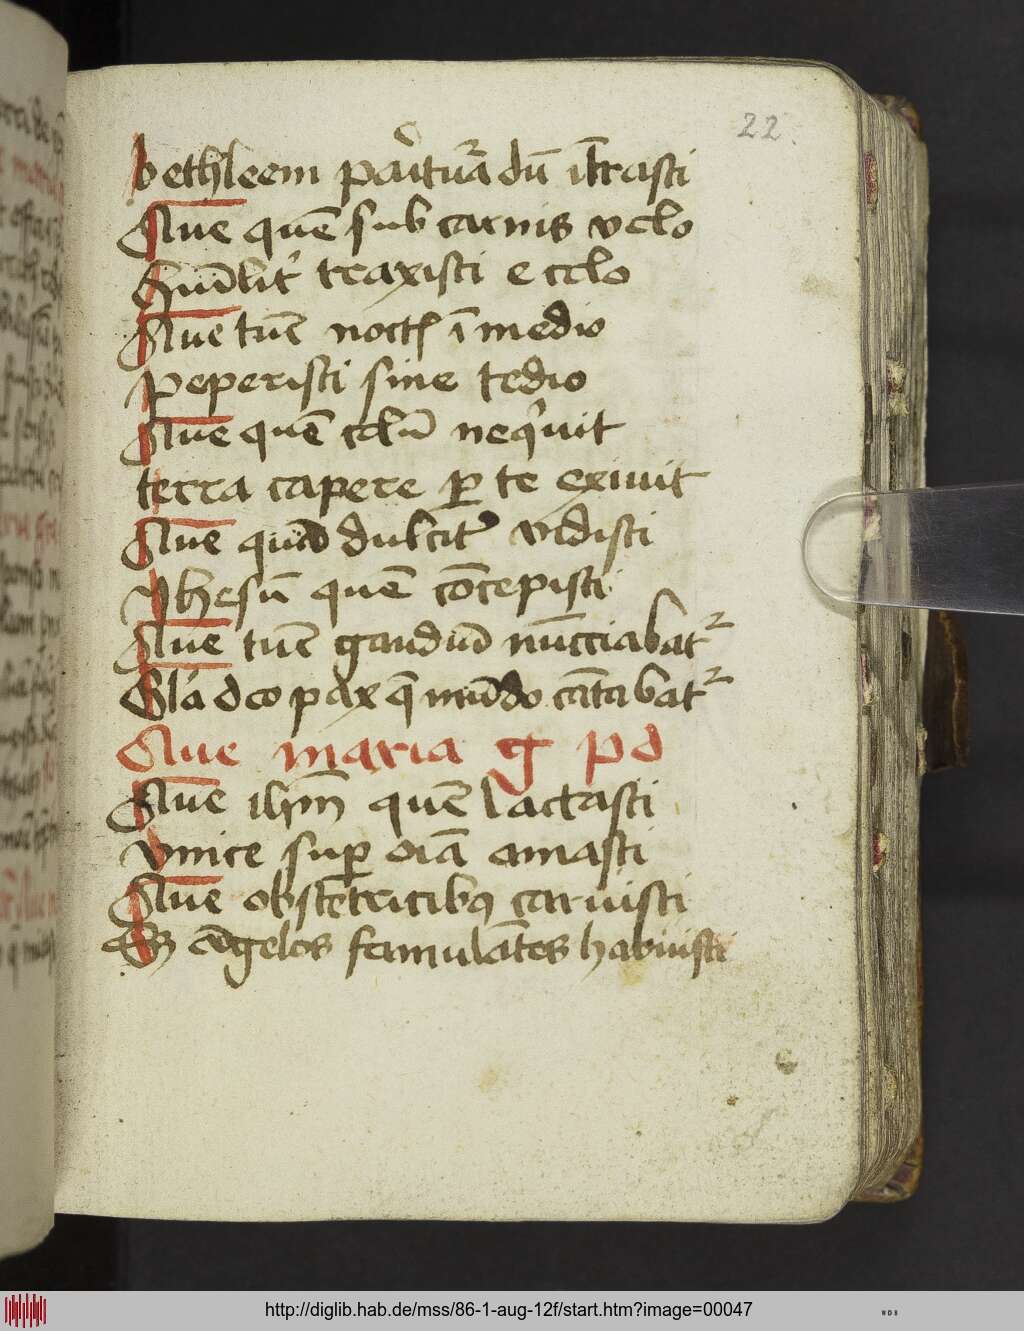 22
bethleem paritura dū ītrasti
Aue quē sub carnis velo
Humilit' traxisti e celo
Aue tūc noctꝭ ī medio
Peperisti sine tedio
Aue quē celū neqͥuit
terra capere ꝑ te exiuit
Aue quē dulcit' vidisti
Ihesū quē cōcepisti
Aue tūc gaudiū nūcciabatᷣ
Glꝛa deo pax qȝ mūdo cātabatᷣ
Aue maria g p d
Aue ihm̄ quē lactasti
Vnice suꝑ oīa amasti
Aue obstetricibꝰ caruisti
Et āgelos famulātes habuisti
http://diglib.hab.de/mss/86-1-aug-12f/start.htm?image=00047